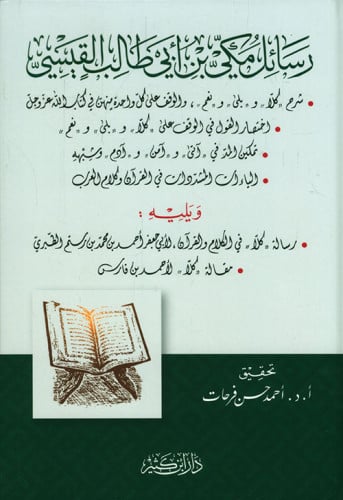 رسائل مكي بن أبي طالب القيسي
• شرح «كلا» و «بلى» و «نعم»، والوقف على كل واحدة منهن في كتاب الله عز وجل
• اختصار القول في الوقف على «كلا» و «بلى» و «نعم»
• تمكين المد في «آتى» و «آمن» و «آدم» وشبهه
• الياءات المشددات في القرآن وكلام العرب
ويليه :
• رسالة «كلا» في الكلام والقرآن، لأبي جعفر أحمد بن محمد بن رستم الطبري
• مقالة «كلا» لأحمد بن فارس
تحقيق
أ. د. أحمد حسن فرحات
دار ابن كثير